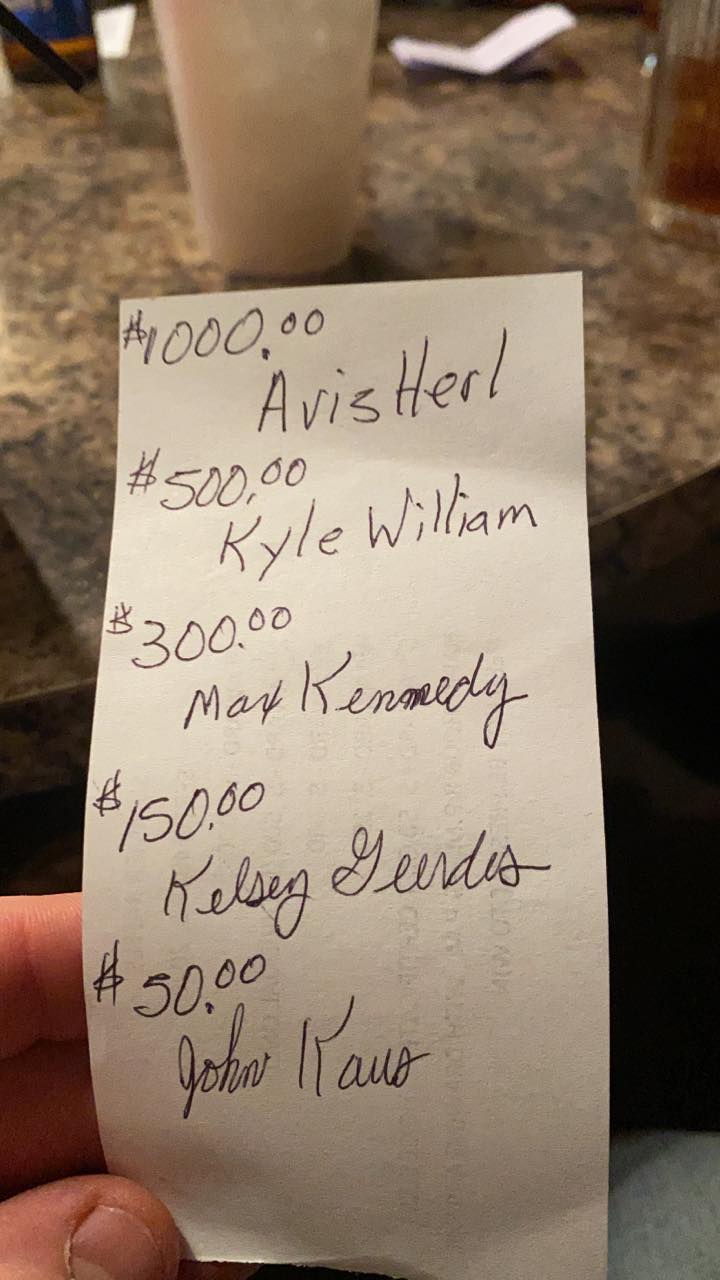 $1000.00
Avis Herl
$500.00
Kyle William
$300.00
Max Kennedy
$150.00
Kelsey Geerdes
$50.00
John Kaus